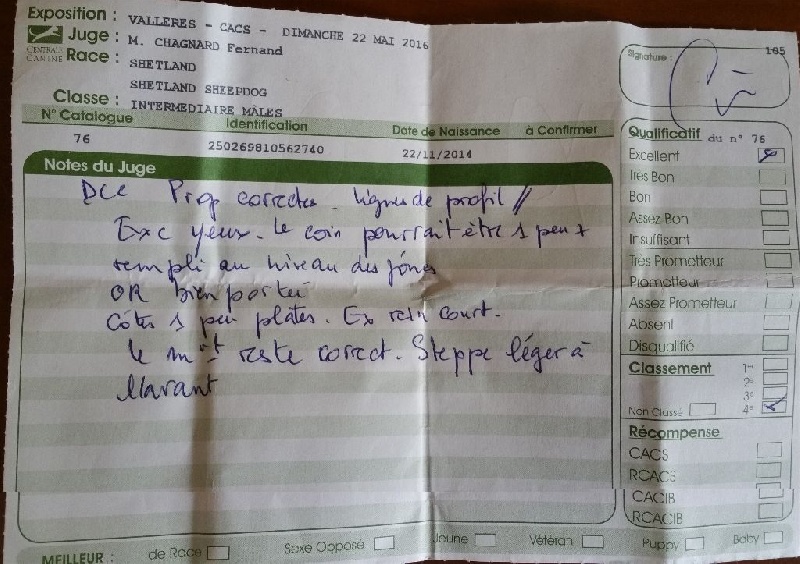 Exposition : VALLERES - CACS - DIMANCHE 22 MAI 2016
Juge : M. CHAGNARD Fernand
CENTRALE CANINE
Race : SHETLAND
SHETLAND SHEEPDOG
Classe : INTERMEDIAIRE MÂLES
N° Catalogue Identification Date de Naissance à Confirmer
76 250269810562740 22/11/2014
Notes du Juge
Prop correctes. Lignes de profil //
Exc yeux. Le coin pourrait être 1 peu +
rempli au niveau des
OR bien portée
Côtes 1 peu plates. Ex rein court.
le mvt reste correct. Steppe léger à
l'avant
Signature :
105
Qualificatif du n° 76
Excellent
Très Bon
Bon
Assez Bon
Insuffisant
Très Prometteur
Prometteur
Assez Prometteur
Absent
Disqualifié
Classement 1er
2e
3e
Non Classé 4e
Récompense
CACS
RCACS
CACIB
RCACIB
MEILLEUR : de Race Sexe Opposé Jeune Vétéran Puppy Baby